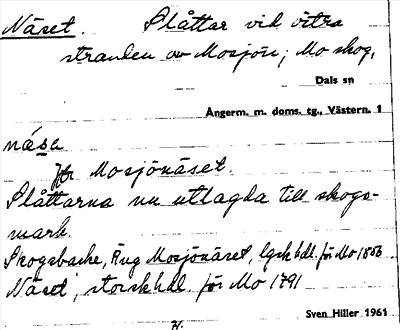 Näset. Slåttar vid östra
stranden av Mosjön; Mo skog,
Dals sn
Ångerm. m. doms. tg., Västern. 1
näsa
Jfr Mosjönäset.
Slåttarna nu utlagda till skogs-
mark.
Skogsbacke, Äng Mosjönäset, lgsk hdl. för Mo 1856.
Näset, storsk hdl. för Mo 1791
Sven Hiller 1961